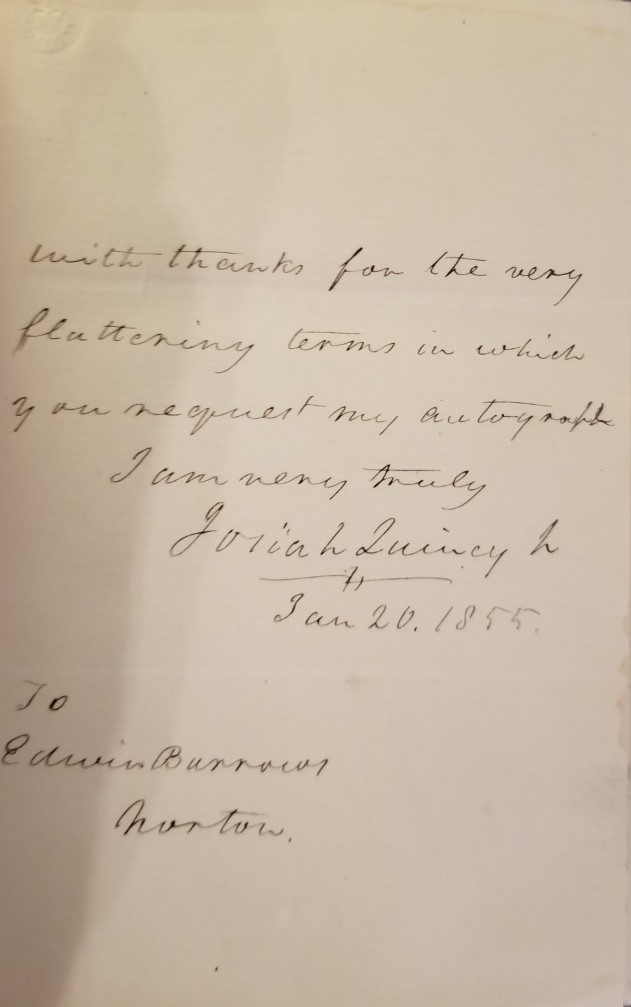 with thanks for the very
flattering terms in which
you request my autograph
I am very truly
Josiah Quincy Jr
Jan 20. 1855.
To
Edwin Burrows
Norton.